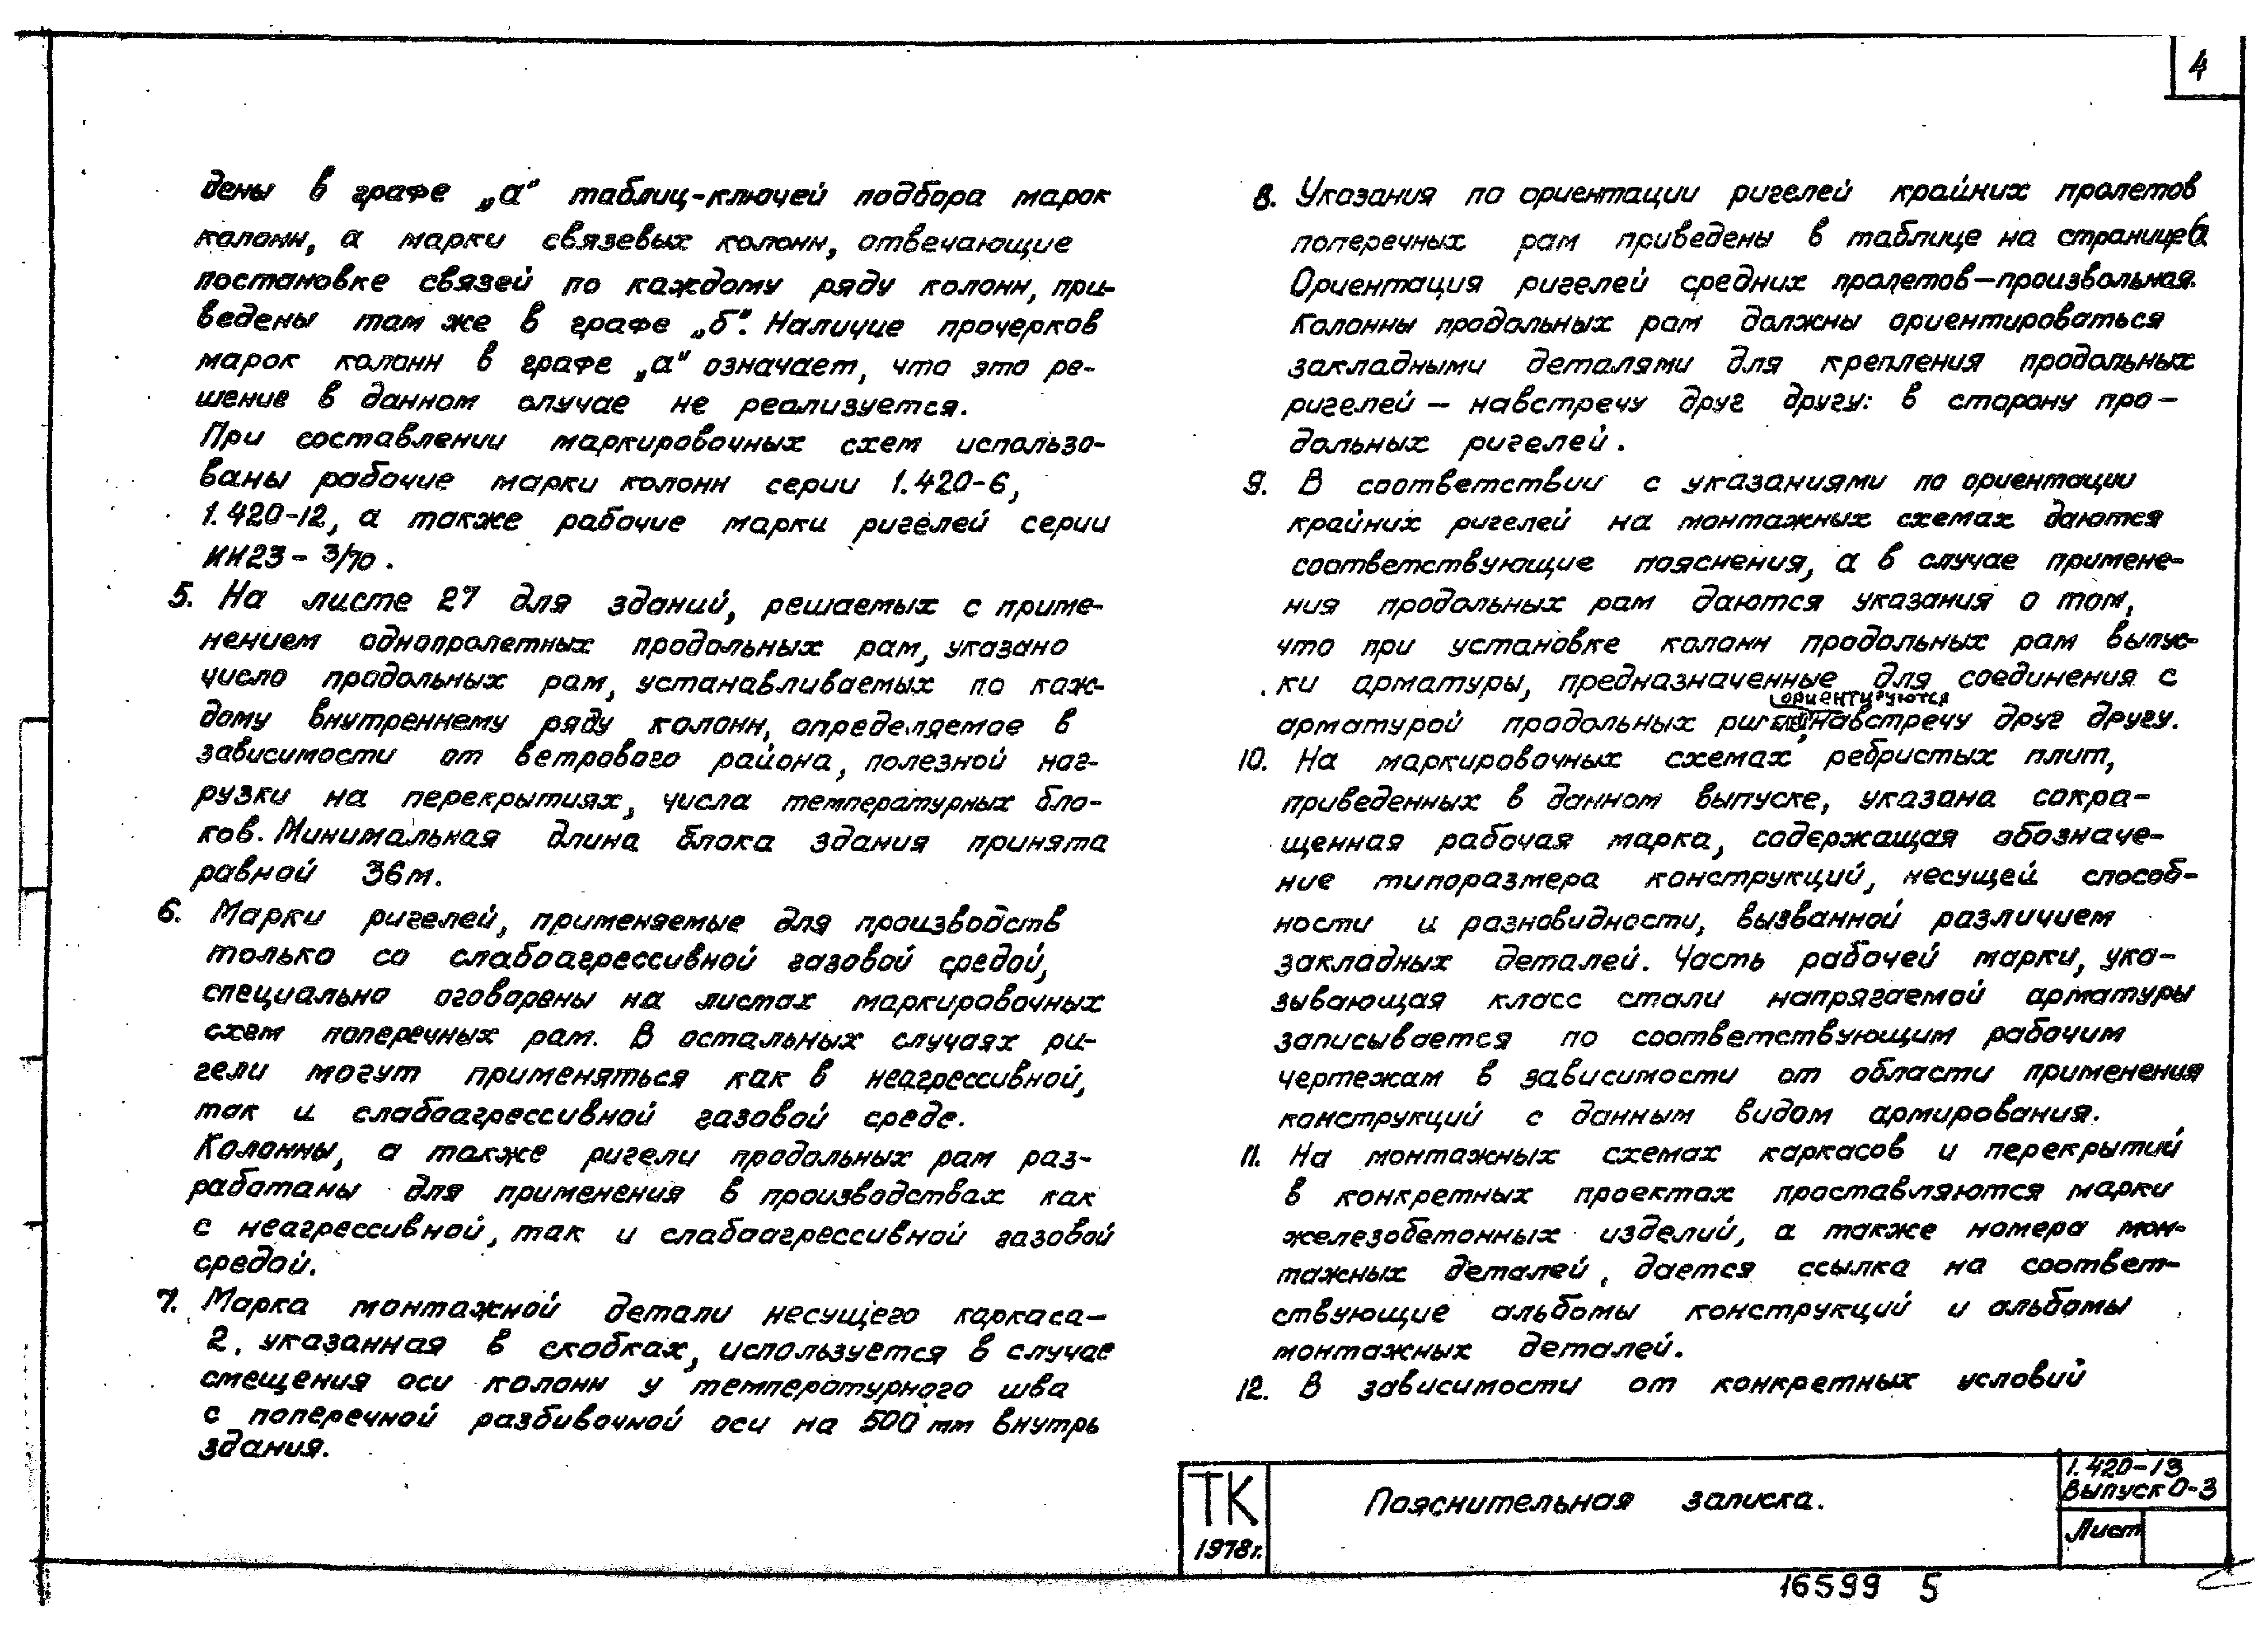 4
дены в графе „а" таблиц-ключей подбора марок
колонн, а марки связевых колонн, отвечающие
постановке связей по каждому ряду колонн, при-
ведены там же в графе „б". Наличие прочерков
марок колонн в графе „а" означает, что это ре-
шение в данном случае не реализуется.
При составлении маркировочных схем использо-
ваны рабочие марки колонн серии 1.420-6,
1.420-12, а также рабочие марки ригелей серии
ИИ23-3/70.
5. На листе 27 для зданий, решаемых с приме-
нением однопролетных продольных рам, указано
число продольных рам, устанавливаемых по каж-
дому внутреннему ряду колонн, определяемое в
зависимости от ветрового района, полезной наг-
рузки на перекрытиях, числа температурных бло-
ков. Минимальная длина блока здания принята
равной 36м.
6. Марки ригелей, применяемые для производств
только со слабоагрессивной газовой средой,
специально оговорены на листах маркировочных
схем поперечных рам. В остальных случаях ри-
гели могут применяться как в неагрессивной,
так и слабоагрессивной газовой среде.
Колонны, а также ригели продольных рам раз-
работаны для применения в производствах как
с неагрессивной, так и слабоагрессивной газовой
средой.
7. Марка монтажной детали несущего каркаса-
2, указанная в скобках, используется в случае
смещения оси колонн у температурного шва
с поперечной разбивочной оси на 500 мм внутрь
здания.
8. Указания по ориентации ригелей крайних пролетов
поперечных рам приведены в таблице на странице 6
Ориентация ригелей средних пролетов-произвольная.
Колонны продольных рам должны ориентироваться
закладными деталями для крепления продольных
ригелей - навстречу друг другу: в сторону про-
дольных ригелей.
9. В соответствии с указаниями по ориентации
крайних ригелей на монтажных схемах даются
соответствующие пояснения, а в случае примене-
ния продольных рам даются указания о том,
что при установке колонн продольных рам выпус-
ки арматуры, предназначенные для соединения с
ориентируются
арматурой продольных ригелей, навстречу друг другу.
10. На маркировочных схемах ребристых плит,
приведенных в данном выпуске, указана сокра-
щенная рабочая марка, содержащая обозначе-
ние типоразмера конструкций, несущей способ-
ности и разновидности, вызванной различием
закладных деталей. Часть рабочей марки, ука-
зывающая класс стали напрягаемой арматуры
записывается по соответствующим рабочим
чертежам в зависимости от области применения
конструкций с данным видом армирования.
11. На монтажных схемах каркасов и перекрытий
в конкретных проектах проставляются марки
железобетонных изделий, а также номера мон-
тажных деталей, дается ссылка на соответ-
ствующие альбомы конструкций и альбомы
монтажных деталей.
12. В зависимости от конкретных условий
ТК
1978г.
Пояснительная записка.
1.420-13
Выпуск 0-3
Лист
16599 5